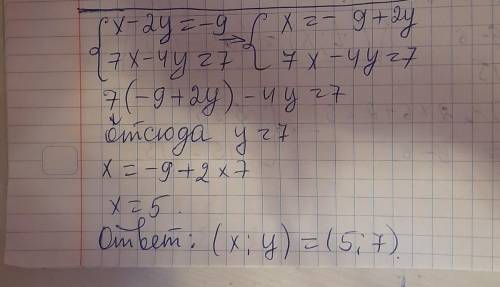 { x-2y=-9 => { x=- 9+2y
7x-4y=7 7x-4y=7
7(-9+2y)-4y=7
Отсюда y=7
x=-9+2×7
x=5.
Ответ: (x; y)=(5;7).